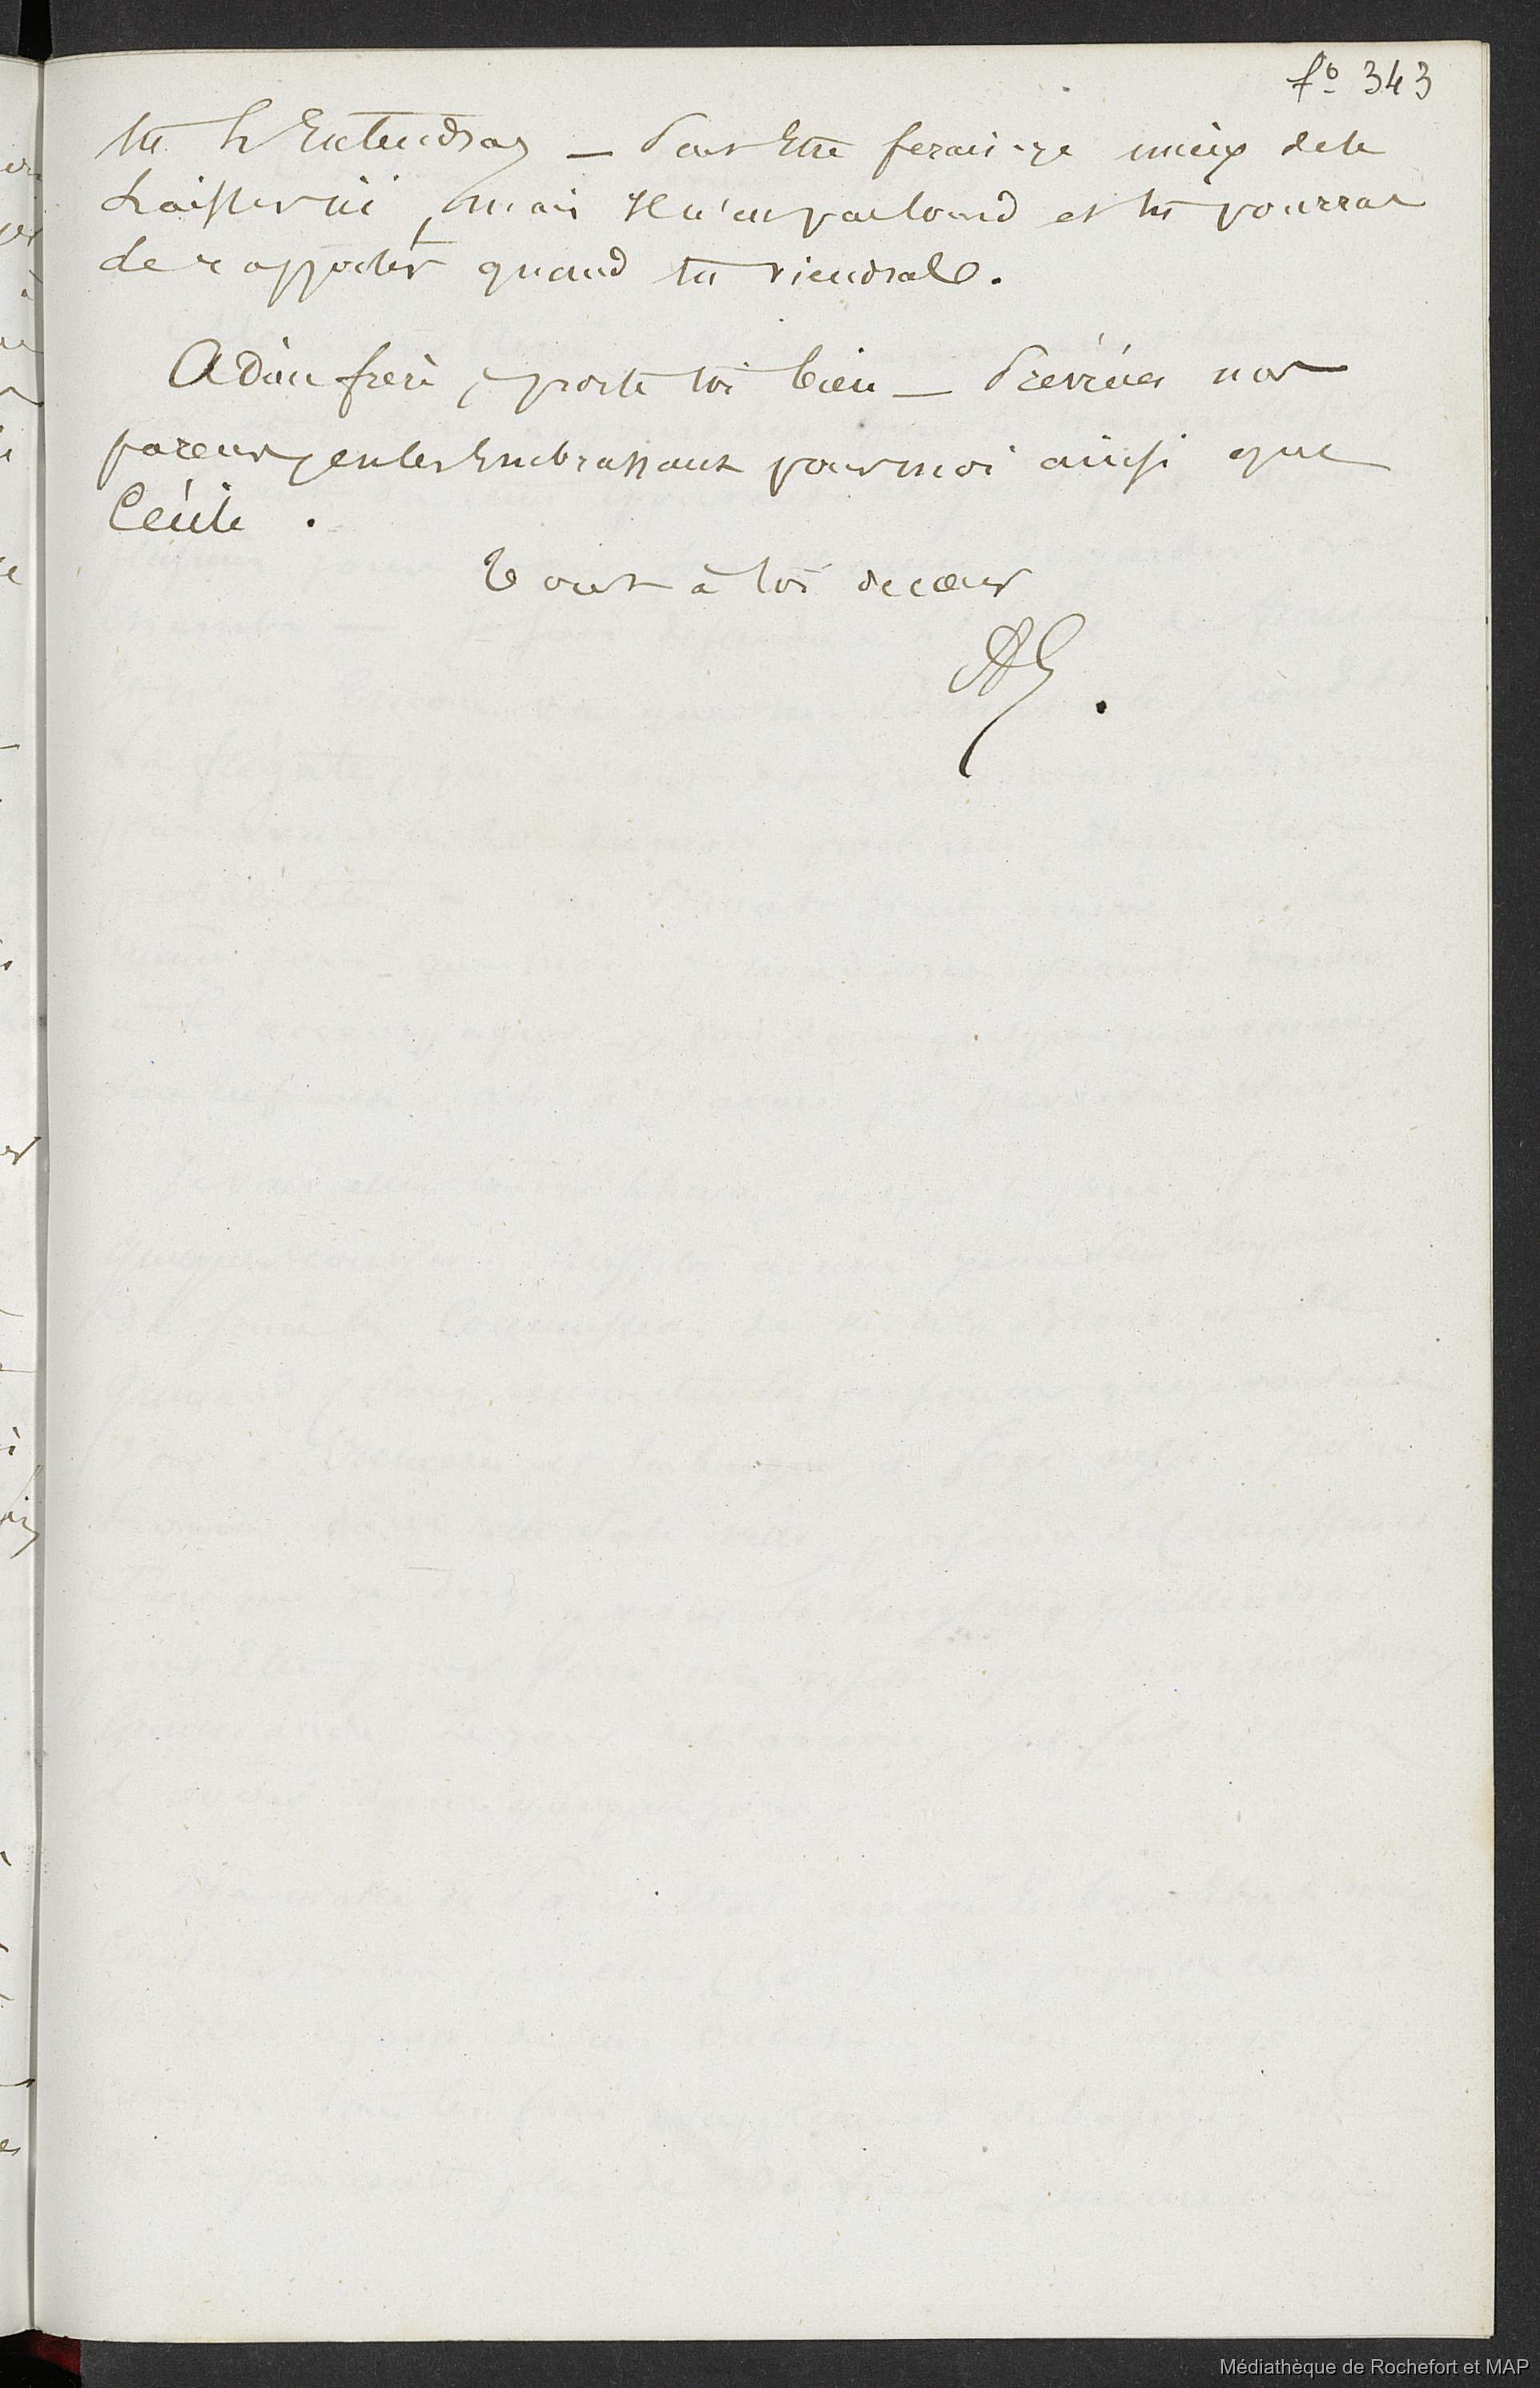 fo 343
tu l'Entendras — Peut Etre ferais-je mieux de le
Laisser ici, mais Il n'est pas lourd et tu pourras
le rapporter quand tu viendras.
Adieu frère, porte toi bien — Préviens nos
parents, en les Embrassant pour moi ainsi que
Cécile.
Tout à toi de cœur
Médiathèque de Rochefort et MAP